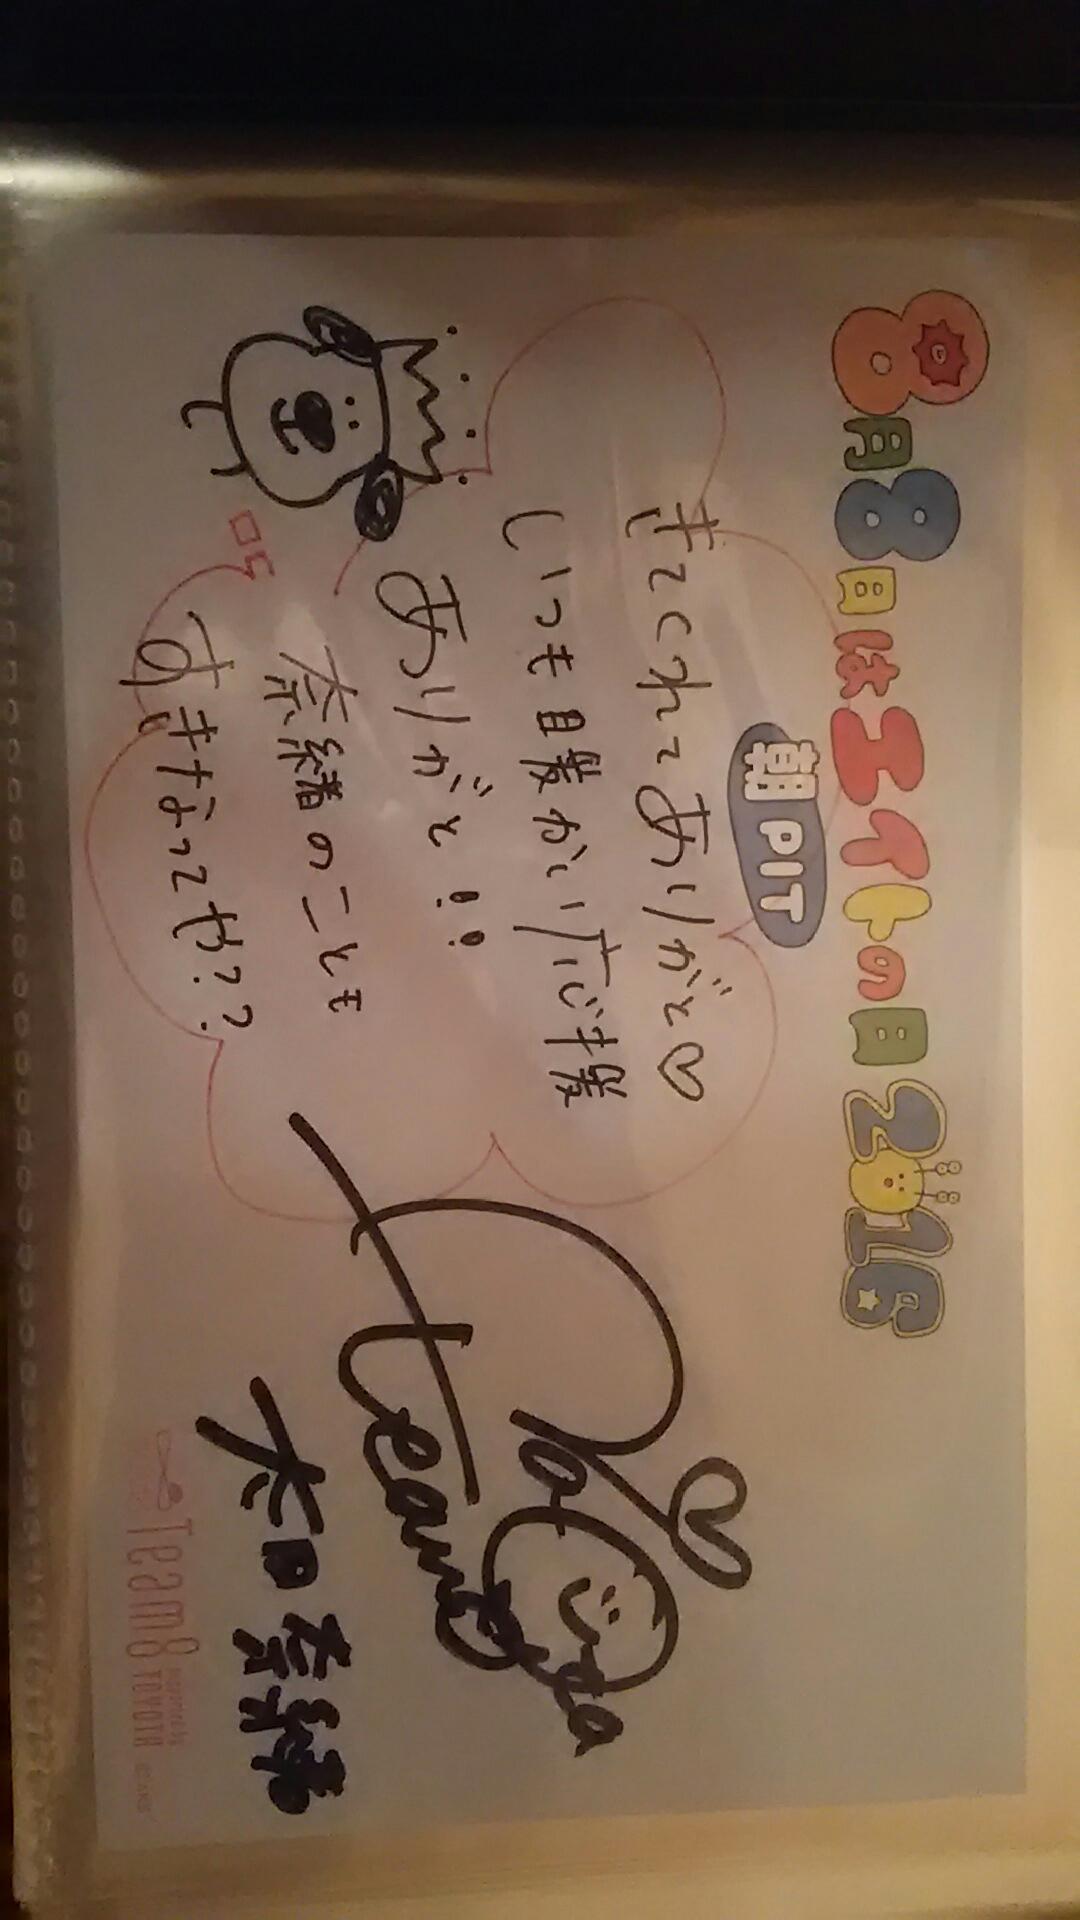 8月8日はエイトの日2016
朝PIT
きてくれてありがと♡
いつも目暖かい応援
ありがと!!
奈緒のことも
すきなってね??
team8
太田奈緒
Team8
TOYOTA